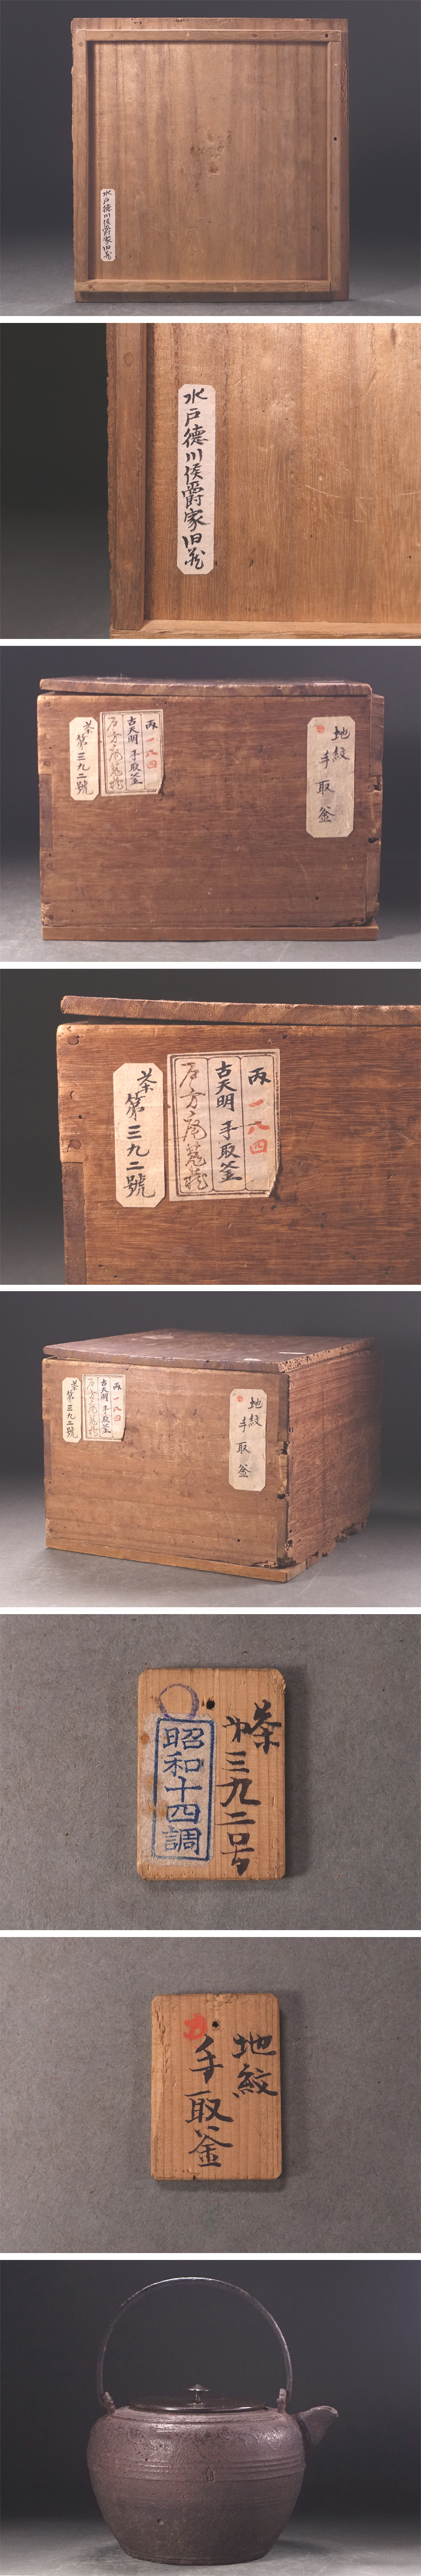 水戸徳川侯爵家旧蔵
水戸徳川侯爵家旧蔵
地紋
手取釜
丙一八四
古天明 手取釜
茶第三九二號
丙一八四
古天明 手取釜
茶
第三九二號
地紋
手取釜
丙一八四
古天明 手取釜
茶
第三九二號
茶
第三九二号
昭和十四調
地紋
手取釜